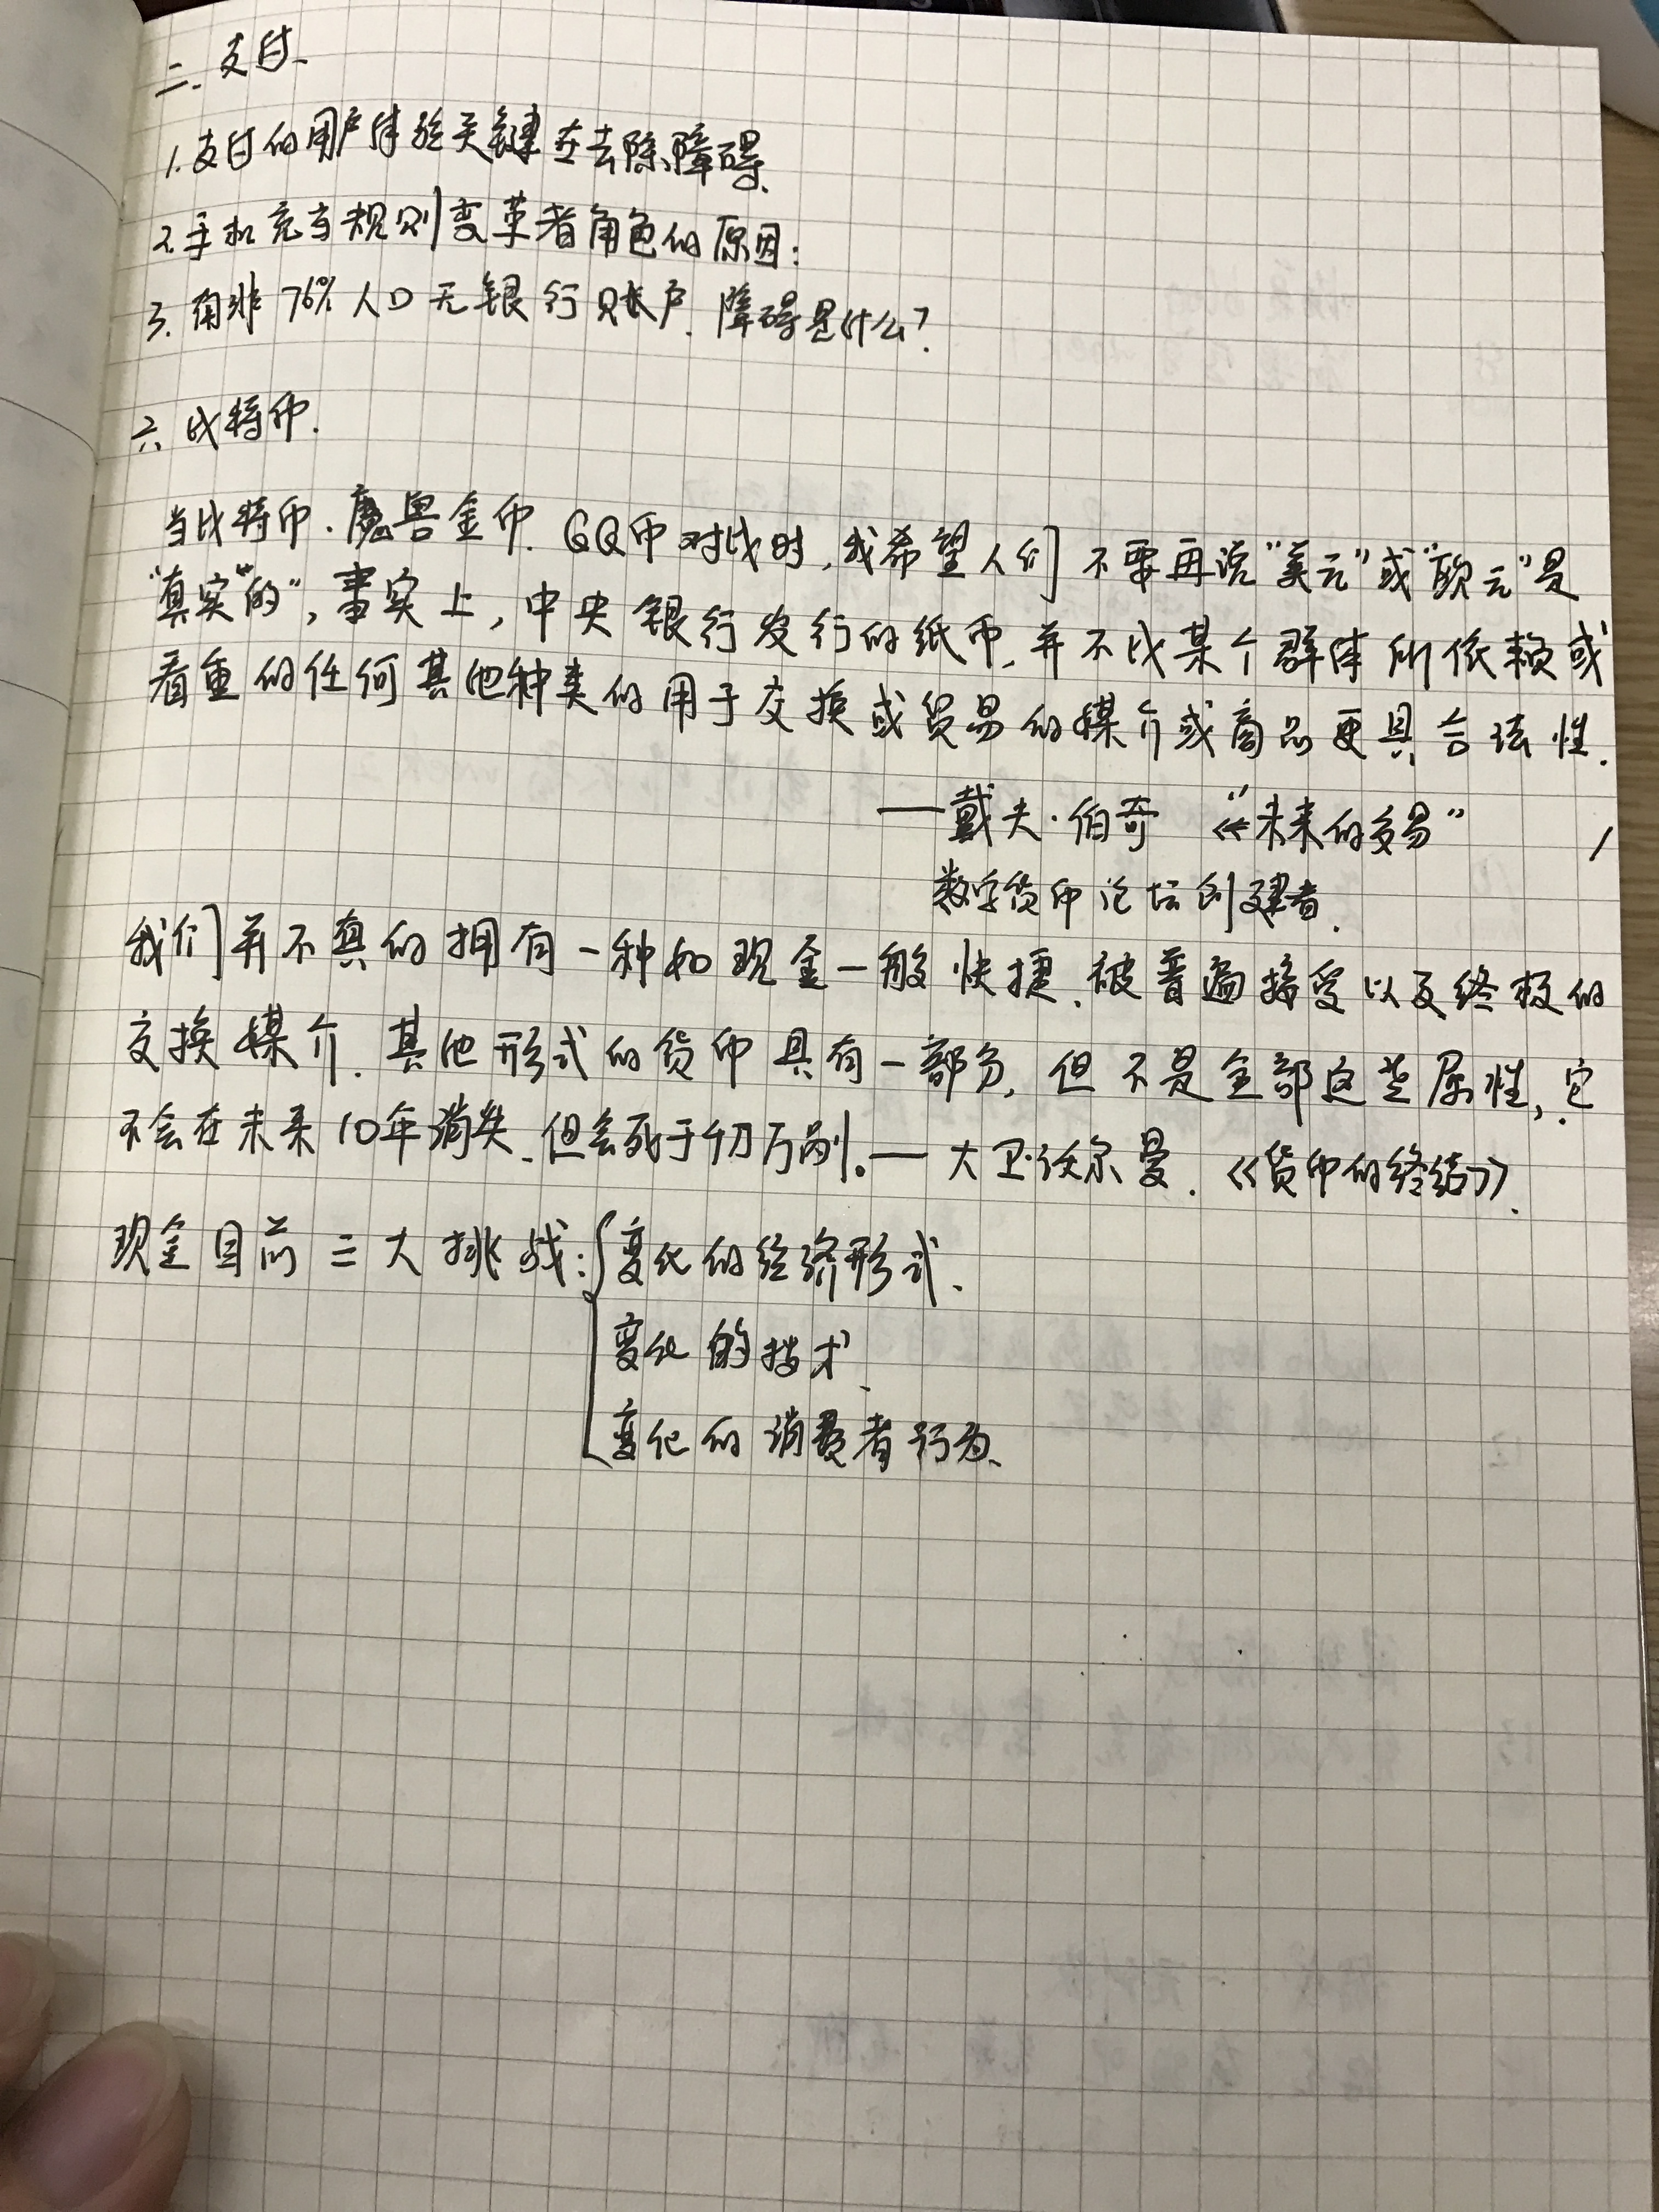 二、支付、
1.支付的用户体验关键在去除障碍、
2.手机充当规则变革者角色的原因:
3.南非76%人口无银行账户.障碍是什么?
六、比特币.
当比特币.魔兽金币.QQ币对比时,我希望人们不要再说"美元"或"欧元"是
"真实"的",事实上,中央银行发行的纸币,并不比某个群体所依赖或
看重的任何其他种类的用于交换或贸易的媒介或商品更具合法性.
——戴夫·伯奇 《"未来的交易"
数字货币论坛创建者.
我们并不真的拥有一种如现金一般快捷、被普遍接受以及终极的
交换媒介.其他形式的货币具有一部分,但不是全部这些属性,它
不会在未来10年消失、但会死于千刀万剐。——大卫·沃尔曼.《货币的终结》.
现金目前三大挑战:{变化的经济形式、
变化的技术、
变化的消费者行为、